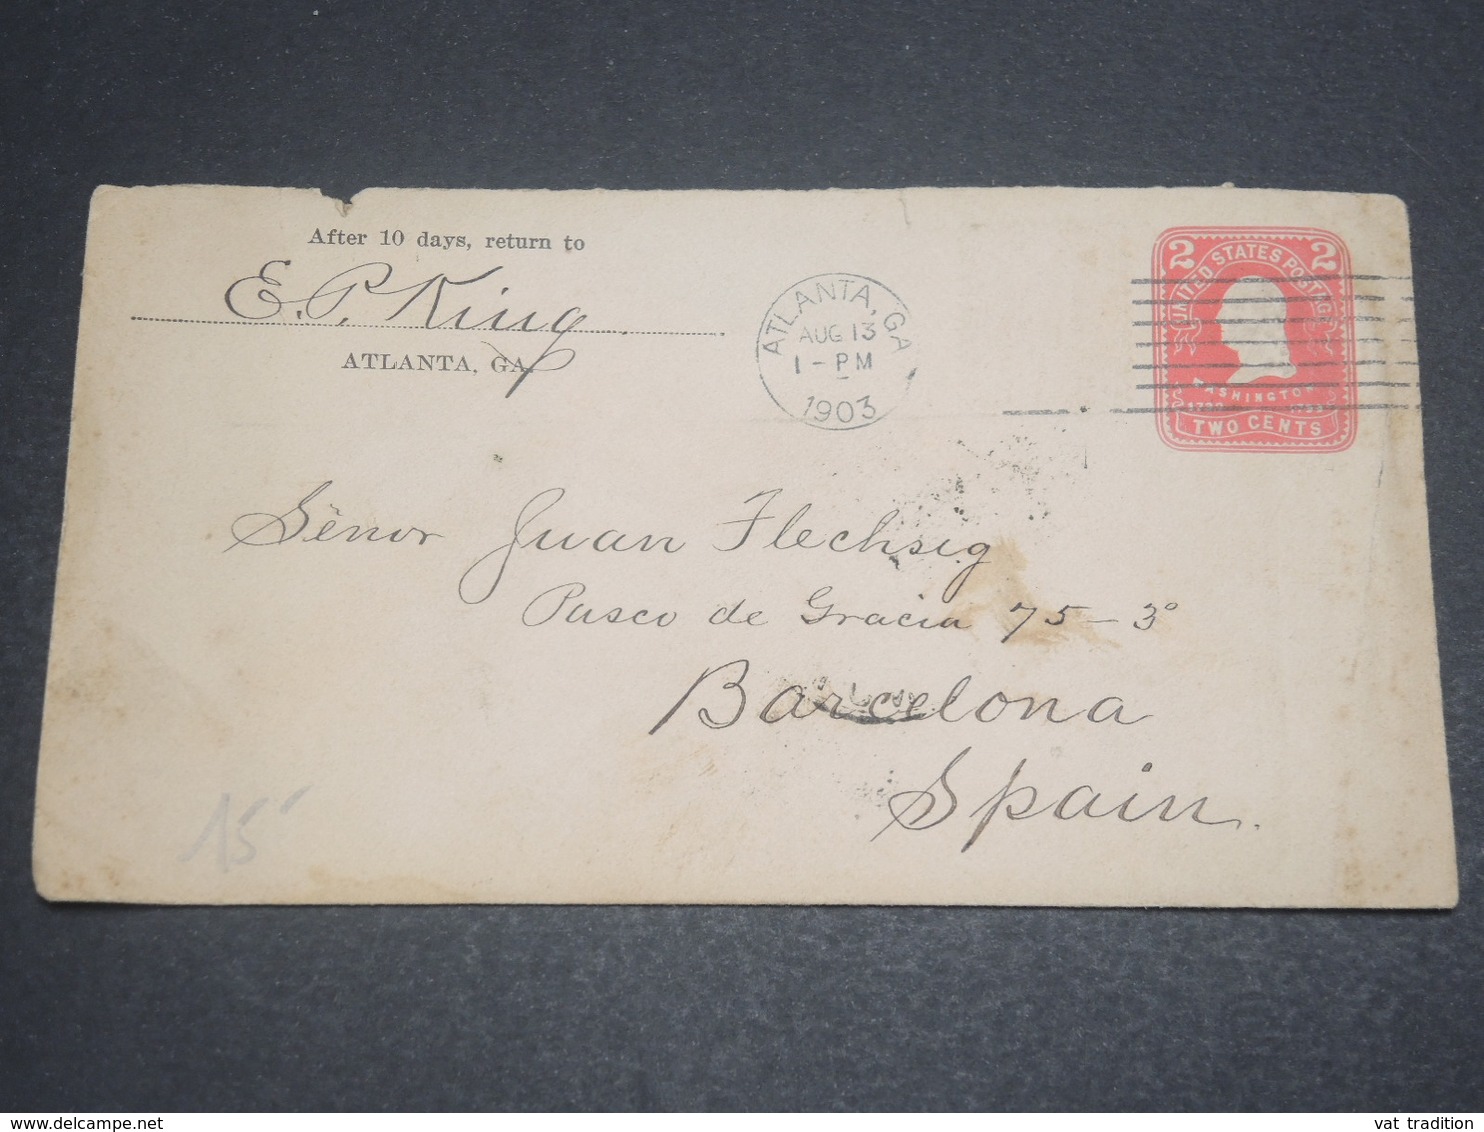 After 10 days, return to
E. P. King
ATLANTA, GA.
ATLANTA, GA
AUG 13
1 - PM
1903
2 UNITED STATES POSTAGE 2
WASHINGTON
TWO CENTS
Sēnor Juan Flechsig
Paseo de Gracia 75 - 3°
Barcelona
Spain.
15
delcampe.net
vat tradition